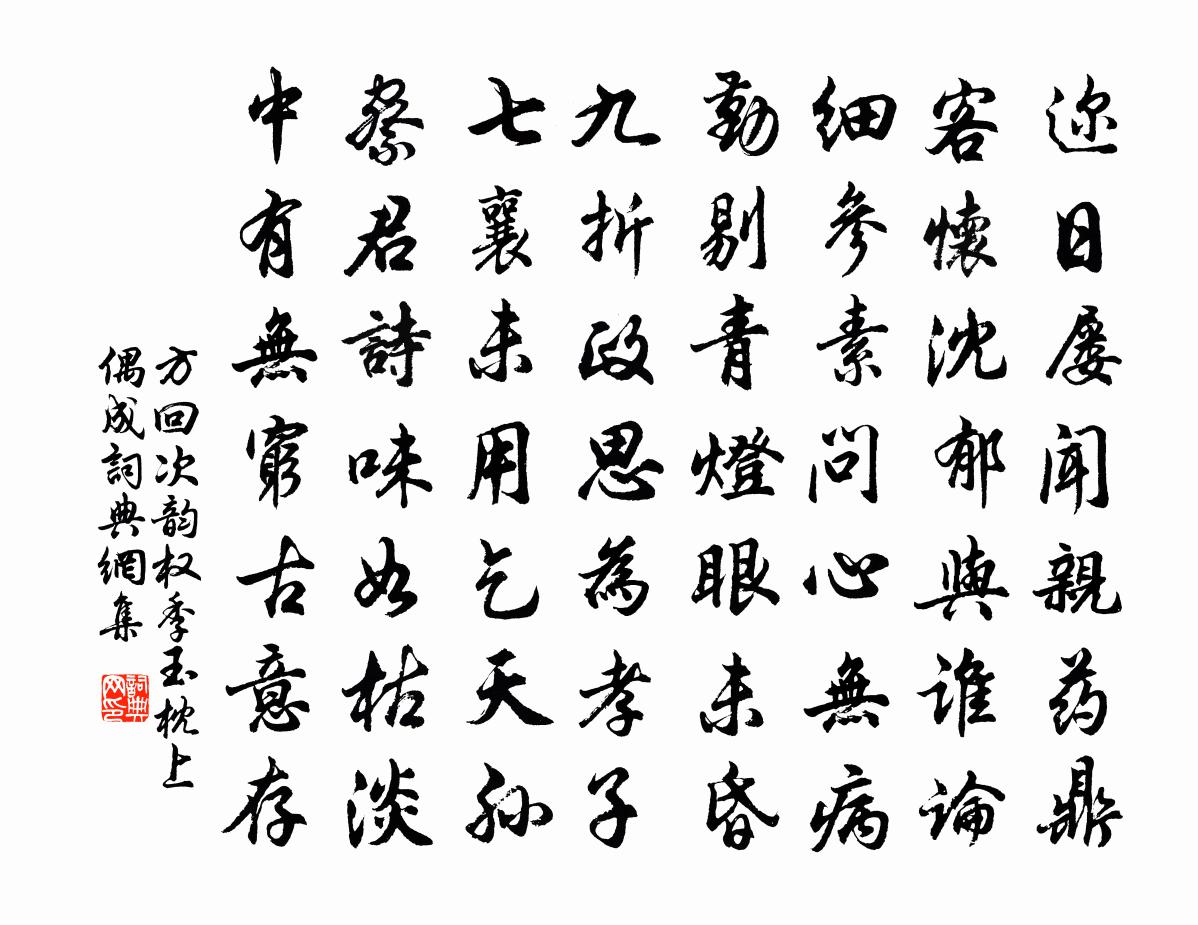 迩日屡闻親药鼎
客懷沈郁與谁論
細參素问心無病
勤剔青燈眼未昏
九折政思為孝子
七襄未用乞天孙
祭君詩味如枯淡
中有無窮古意存
方回次韵权季玉枕上
偶成詞典網集
詞典网印